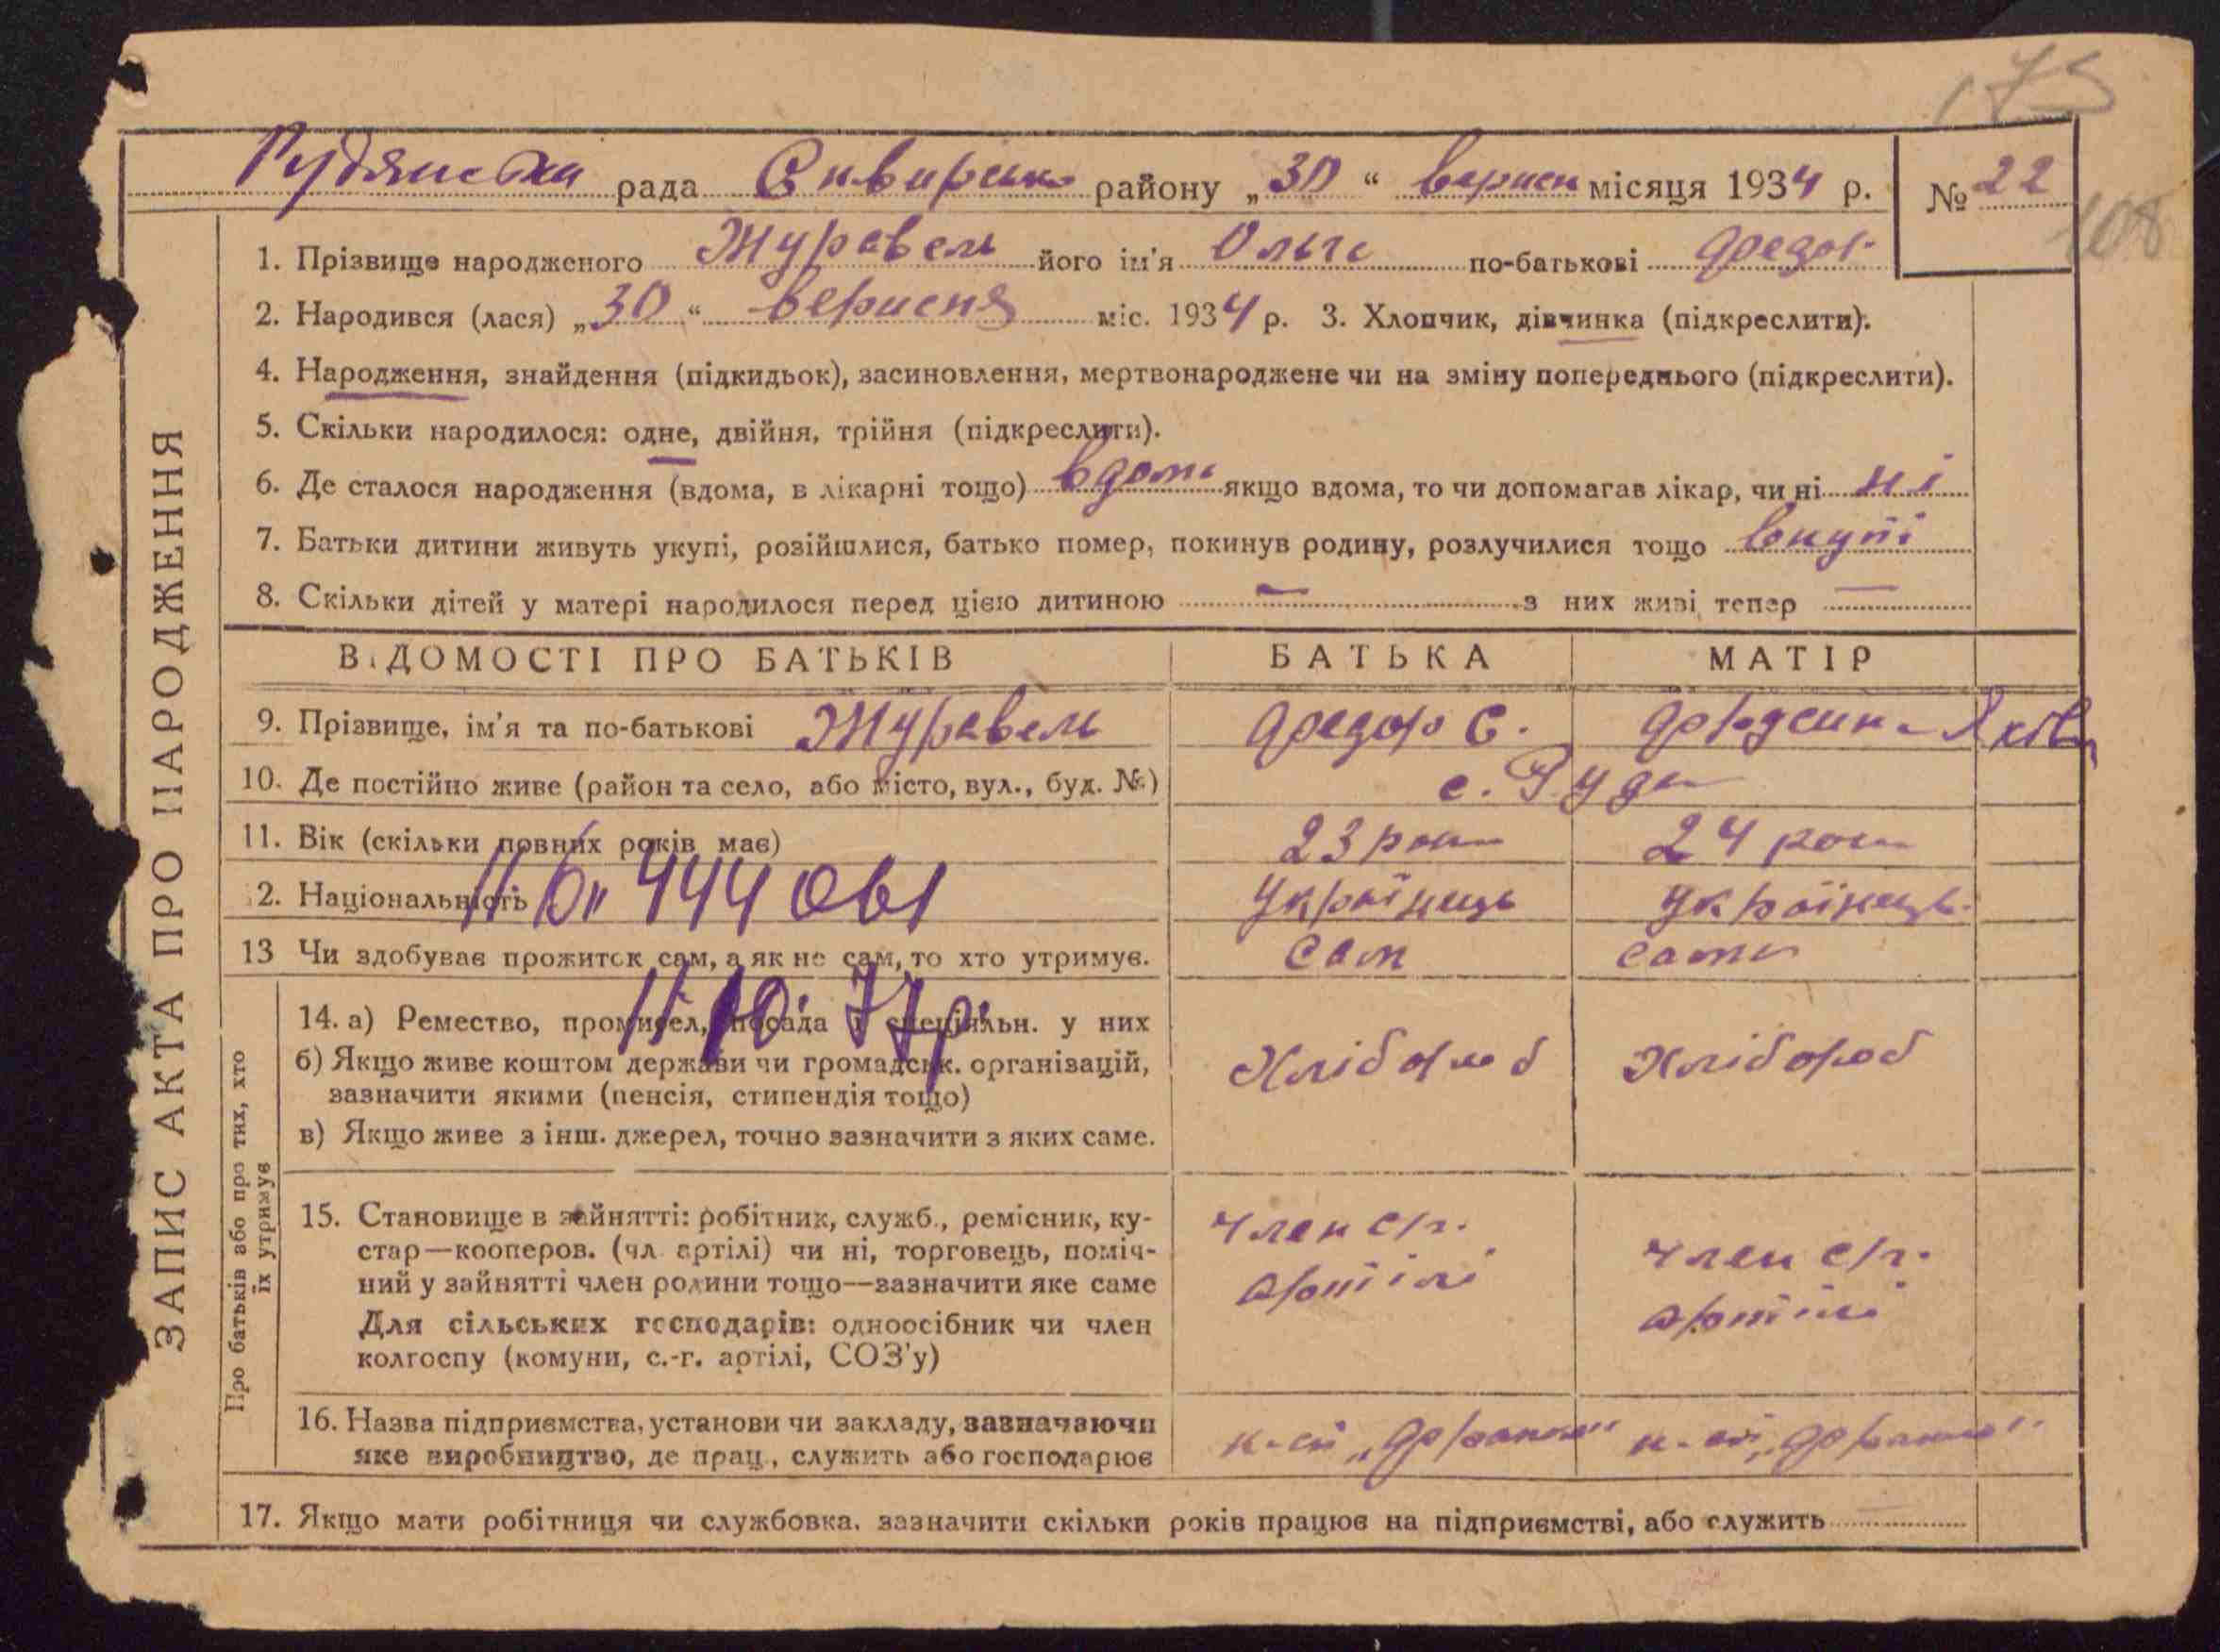 175
Рудянська рада Сквирсько району „30“ вересн місяця 1934 р. № 22
108
1. Прізвище народженого Журавель його ім'я Ольга по-батькові Федор.
2. Народився (лася) „30“ вересня міс. 1934 р. 3. Хлопчик, дівчинка (підкреслити).
4. Народження, знайдення (підкидьок), засиновлення, мертвонароджене чи на зміну попереднього (підкреслити).
5. Скільки народилося: одне, двійня, трійня (підкреслити).
6. Де сталося народження (вдома, в лікарні тощо) вдома якщо вдома, то чи допомагав лікар, чи ні ні
7. Батьки дитини живуть укупі, розійшлися, батько помер, покинув родину, розлучилися тощо вкупі
8. Скільки дітей у матері народилося перед цією дитиною — з них живі тепер —
ЗАПИС АКТА ПРО НАРОДЖЕННЯ
ВІДОМОСТІ ПРО БАТЬКІВ БАТЬКА МАТІР
9. Прізвище, ім'я та по-батькові Журавель Федор С. Яків
10. Де постійно живе (район та село, або місто, вул., буд. №) с. Руда
11. Вік (скільки повних років має) 23 роки 24 роки
2. Національність Українець Українець
13 Чи здобуває прожиток сам, а як не сам, то хто утримує. Сам Сама
11 10 77р.
Про батьків або про тих, хто їх утримує
14. а) Ремество, промисел, посада і спеціяльн. у них
б) Якщо живе коштом держави чи громадськ. організацій, Хлібороб Хлібороб
зазначити якими (пенсія, стипендія тощо)
в) Якщо живе з інш. джерел, точно зазначити з яких саме.
15. Становище в зайнятті: робітник, служб., ремісник, ку-
стар—кооперов. (чл артілі) чи ні, торговець, поміч- член с/г. член с/г.
ний у зайнятті член родини тощо—зазначити яке саме артілі артілі
Для сільських господарів: одноосібник чи член
колгоспу (комуни, с.-г. артілі, СОЗ'у)
16. Назва підприємства, установи чи закладу, зазначаючи
яке виробництво, де прац., служить або господарює
17. Якщо мати робітниця чи службовка, зазначити скільки років працює на підприємстві, або служить